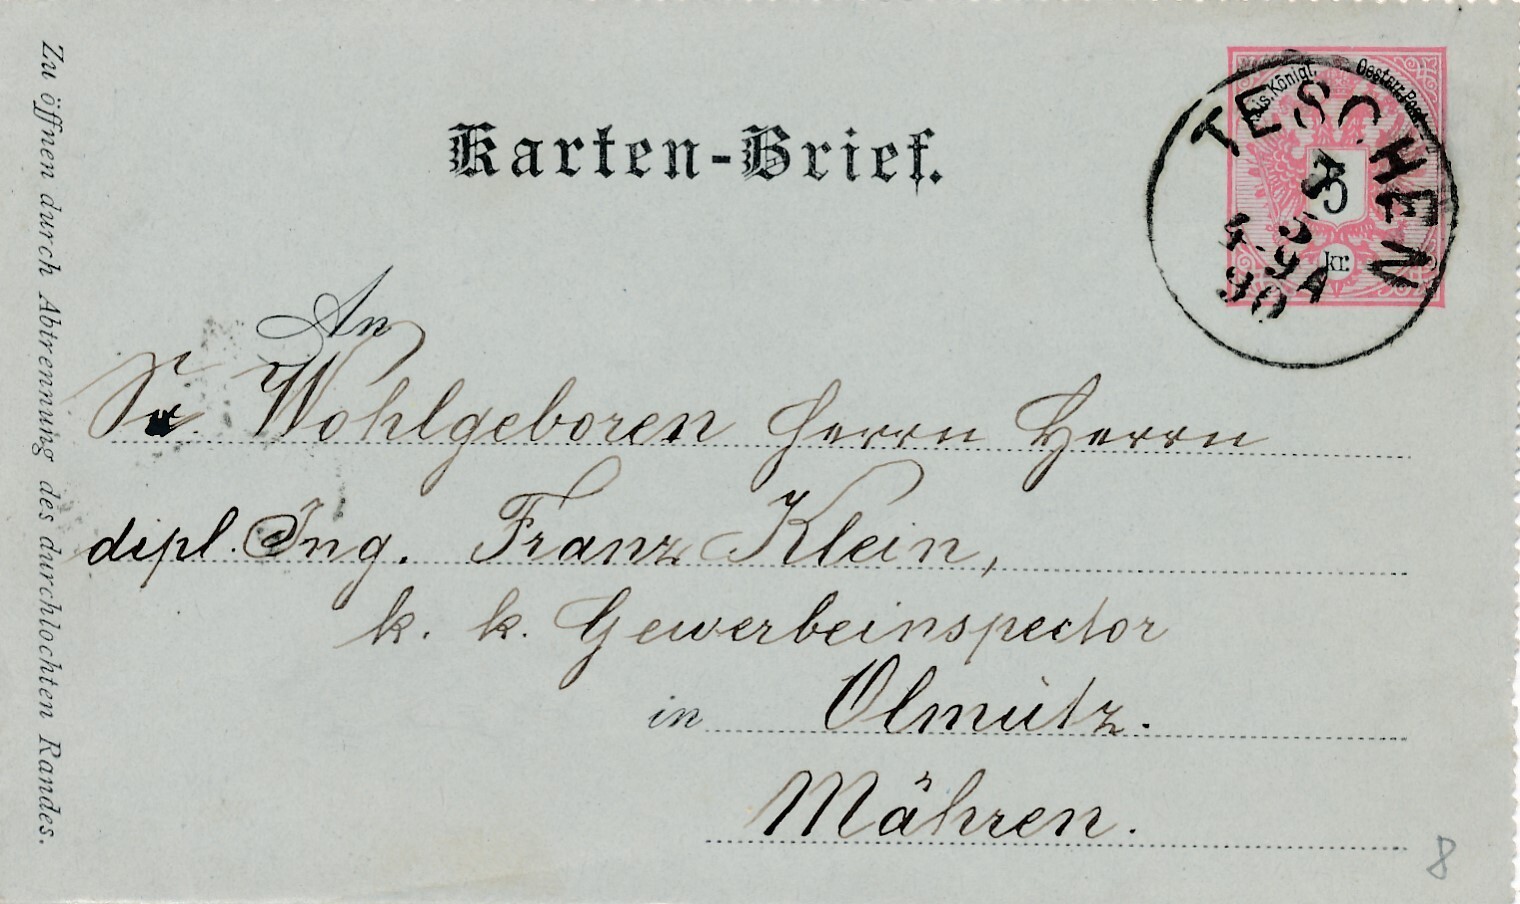 Karten-Brief.
Kais. Königl. Oesterr. Post
5
kr.
TESCHEN
5
4-9A
90
An
Sr. Wohlgeboren Herrn Herrn
dipl. Ing. Franz Klein,
k. k. Gewerbeinspector
in Olmütz.
Mähren.
Zu öffnen durch Abtrennung des durchlochten Randes.
8